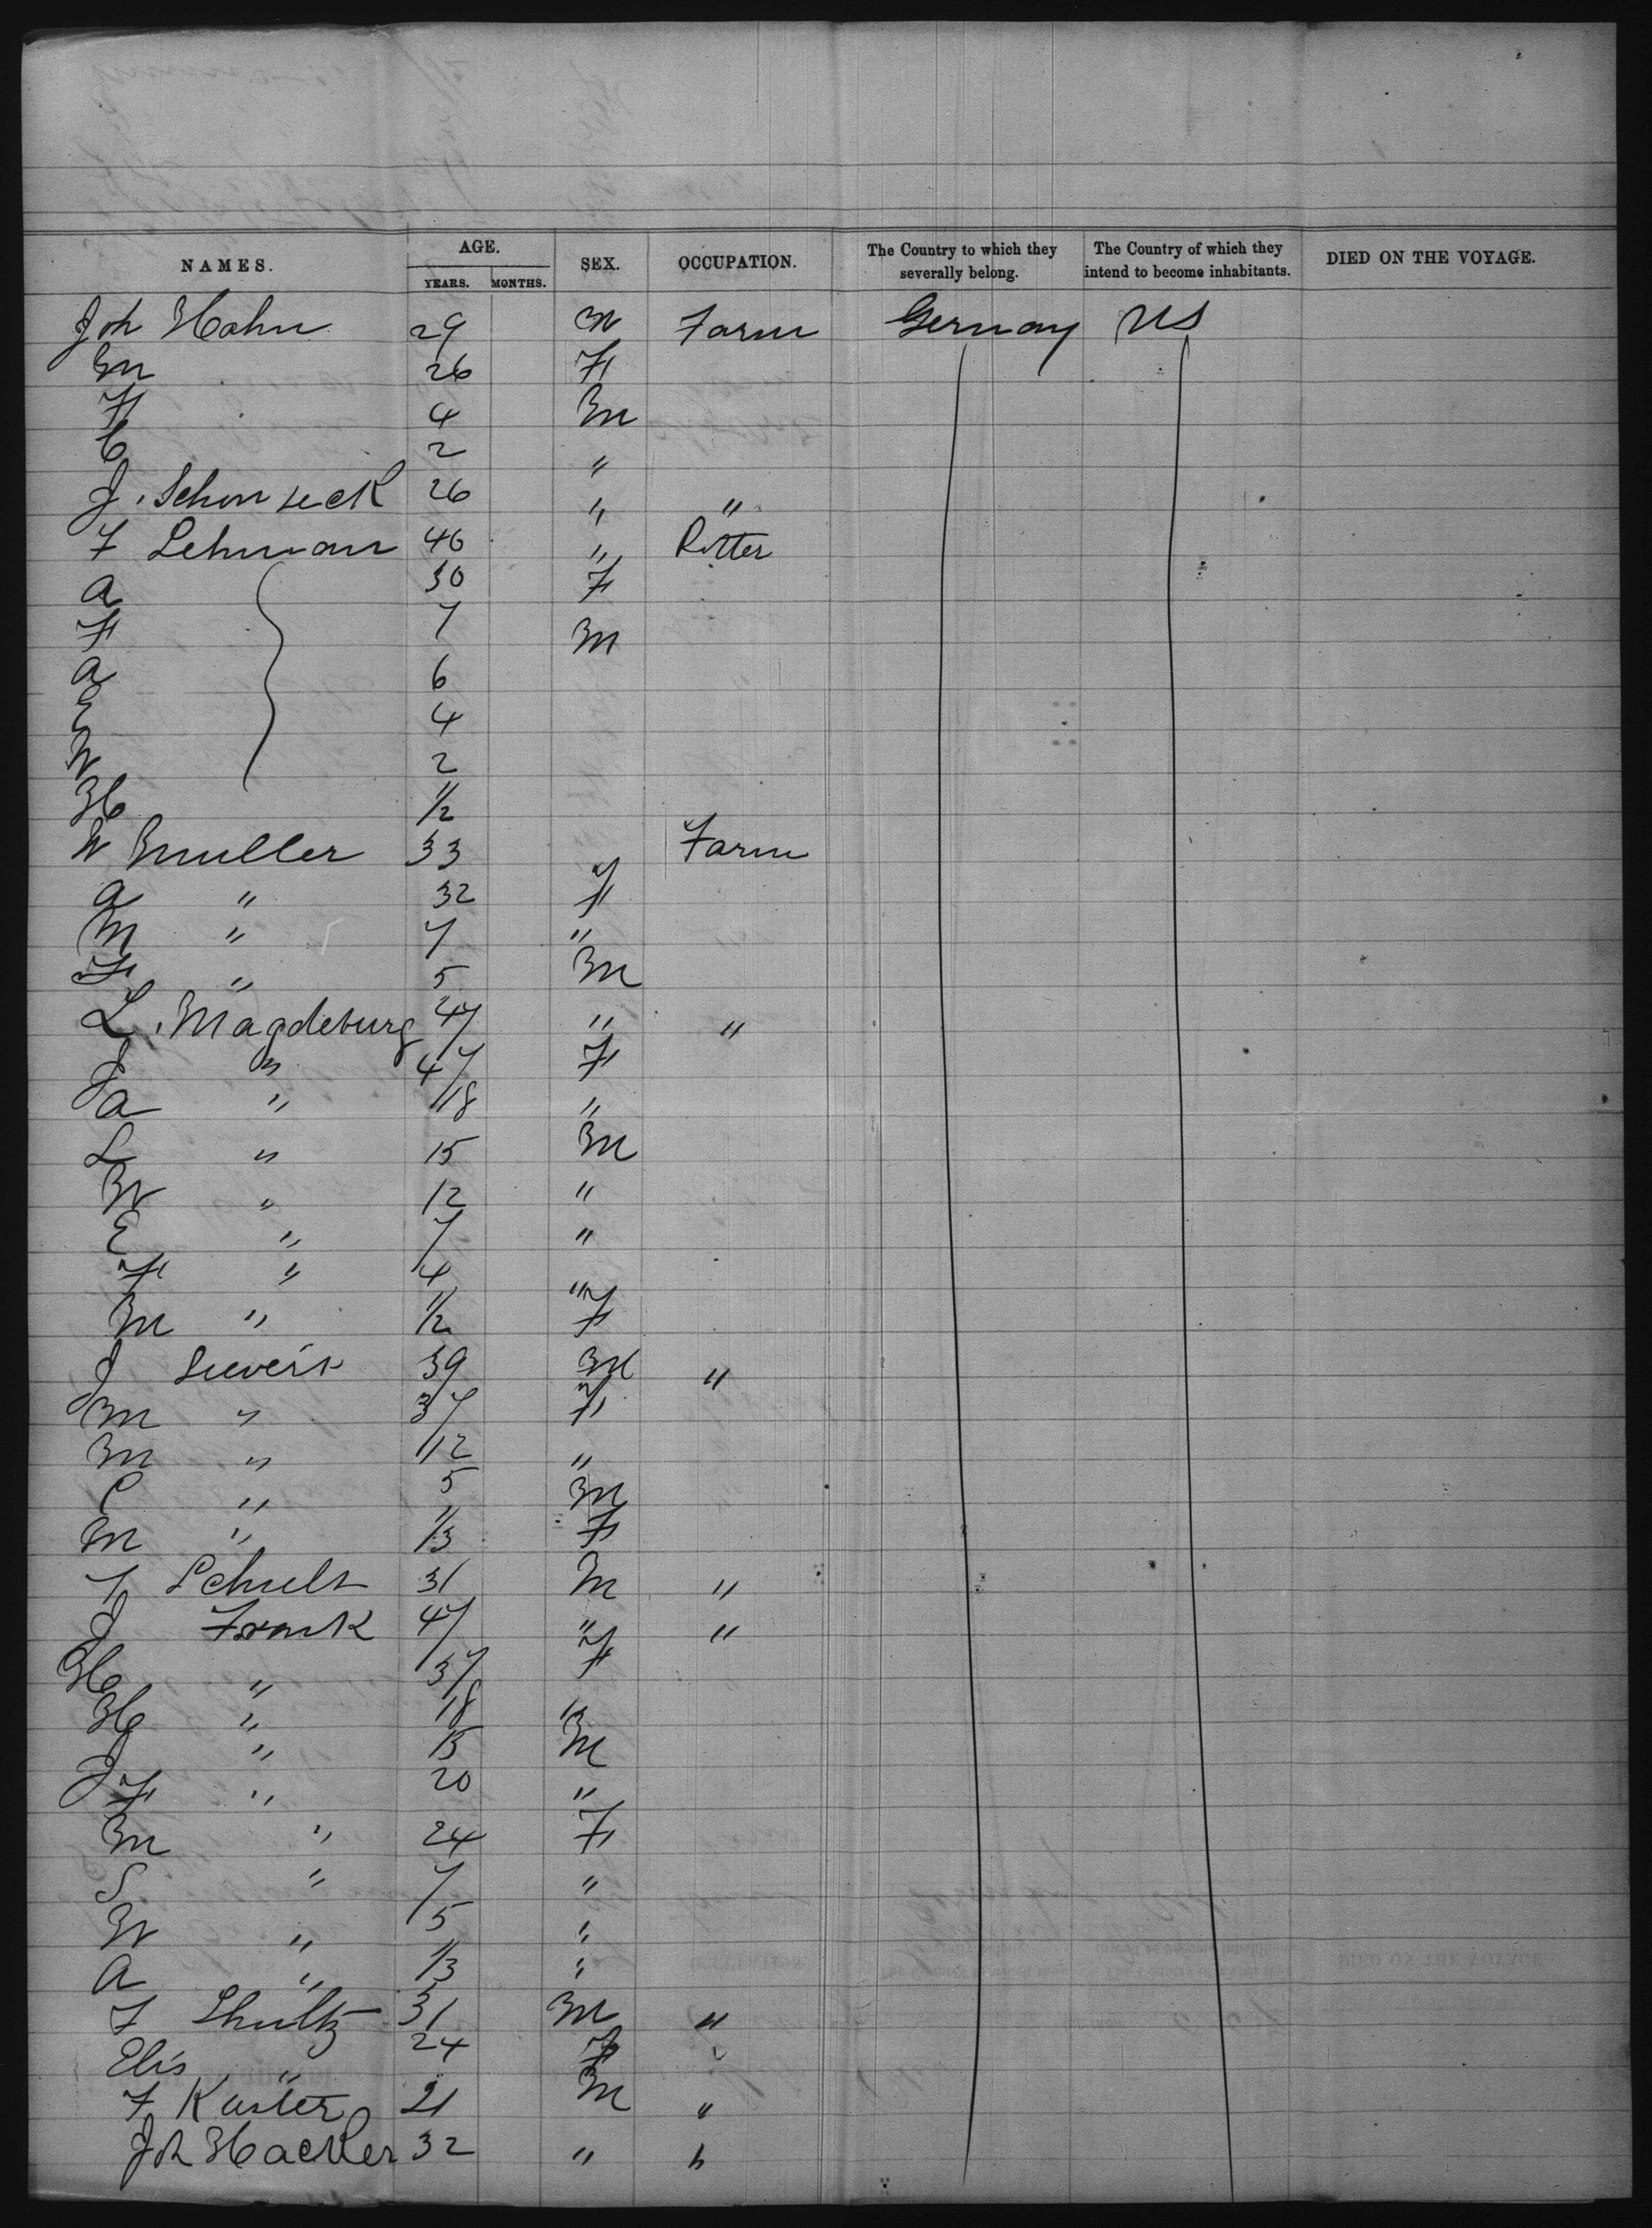 NAMES. AGE. SEX. OCCUPATION. The Country to which they severally belong. The Country of which they intend to become inhabitants. DIED ON THE VOYAGE.
YEARS. MONTHS.
Joh Hahn 29 M Farm Germany US
M 26 F
F 4 M
C 2 "
J. Schon 26 " "
F Lehman 46 "
A 30 F
F 7 M
A 6
E 4
W 2
H 1/2
W Muller 33 Farm
A " 32 F
M " 7 "
F " 5 M
L. Magdeburg 47 " "
J " 47 F
A " 18 "
L " 15 M
W " 12 "
E " 7 "
F " 4 "
M " 1/2 F
J Sievert 39 M "
M " 37 F
M " 12 "
C " 5 M
M " 1/3 F
F Schult 31 M "
J Frank 47 " "
H " 37 F
H " 18 "
J " 15 M
F " 20 "
M " 24 F
S " 7 "
W " 5 "
A " 1/3 "
F Shultz 31 M "
Elis " 24 F "
F Kuster 21 M "
Joh Hacker 32 " "